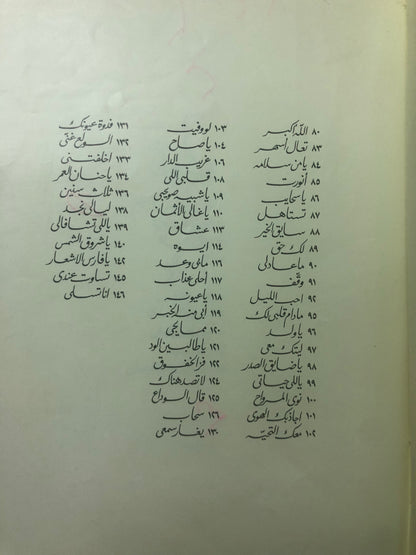 ٨٠ الله أكبر
٨٣ تعال أسهر
٨٤ يا من سلامه
٨٥ أنورت
٨٦ يا سحايب
٨٧ تستاهل
٨٨ سابق الخير
٨٩ لك حق
٩٠ ما عاد لي
٩١ وقف
٩٢ احب الليل
٩٥ مادام قلبي لك
٩٦ يا ولد
٩٧ ليتك معي
٩٨ يا ضايق الصدر
٩٩ ياللي حياتي
١٠٠ نوى المرواح
١٠١ اجاذبك الهوى
١٠٢ معك التحيّه
١٠٣ لو وفيت
١٠٤ يا صاح
١٠٦ غريب الدار
١٠٨ قلبي اللي
١٠٩ يا شبيه صويحبي
١١٠ يا غالي الأثمان
١١٣ عشاق
١١٤ ايوه
١١٥ ما في وعد
١١٧ أحلى عذاب
١١٨ يا عيونه
١١٩ أبي منه الخبر
١٢٠ مما يحي
١٢١ يا طالبين الود
١٢٢ فز الخفوق
١٢٤ لا تصد هناك
١٢٥ قال الوداع
١٢٦ سحاب
١٣٠ يفز سمعي
١٣١ فدوة عيونك
١٣٢ الولع غنى
١٣٣ اخلفتني
١٣٤ يا حنان العمر
١٣٦ ثلاث سنين
١٣٨ ليالي نجد
١٣٩ ياللي تشافالي
١٤٠ يا شروق الشمس
١٤٢ يا فارس الاشعار
١٤٥ تساوت عندي
١٤٦ انا تسلى